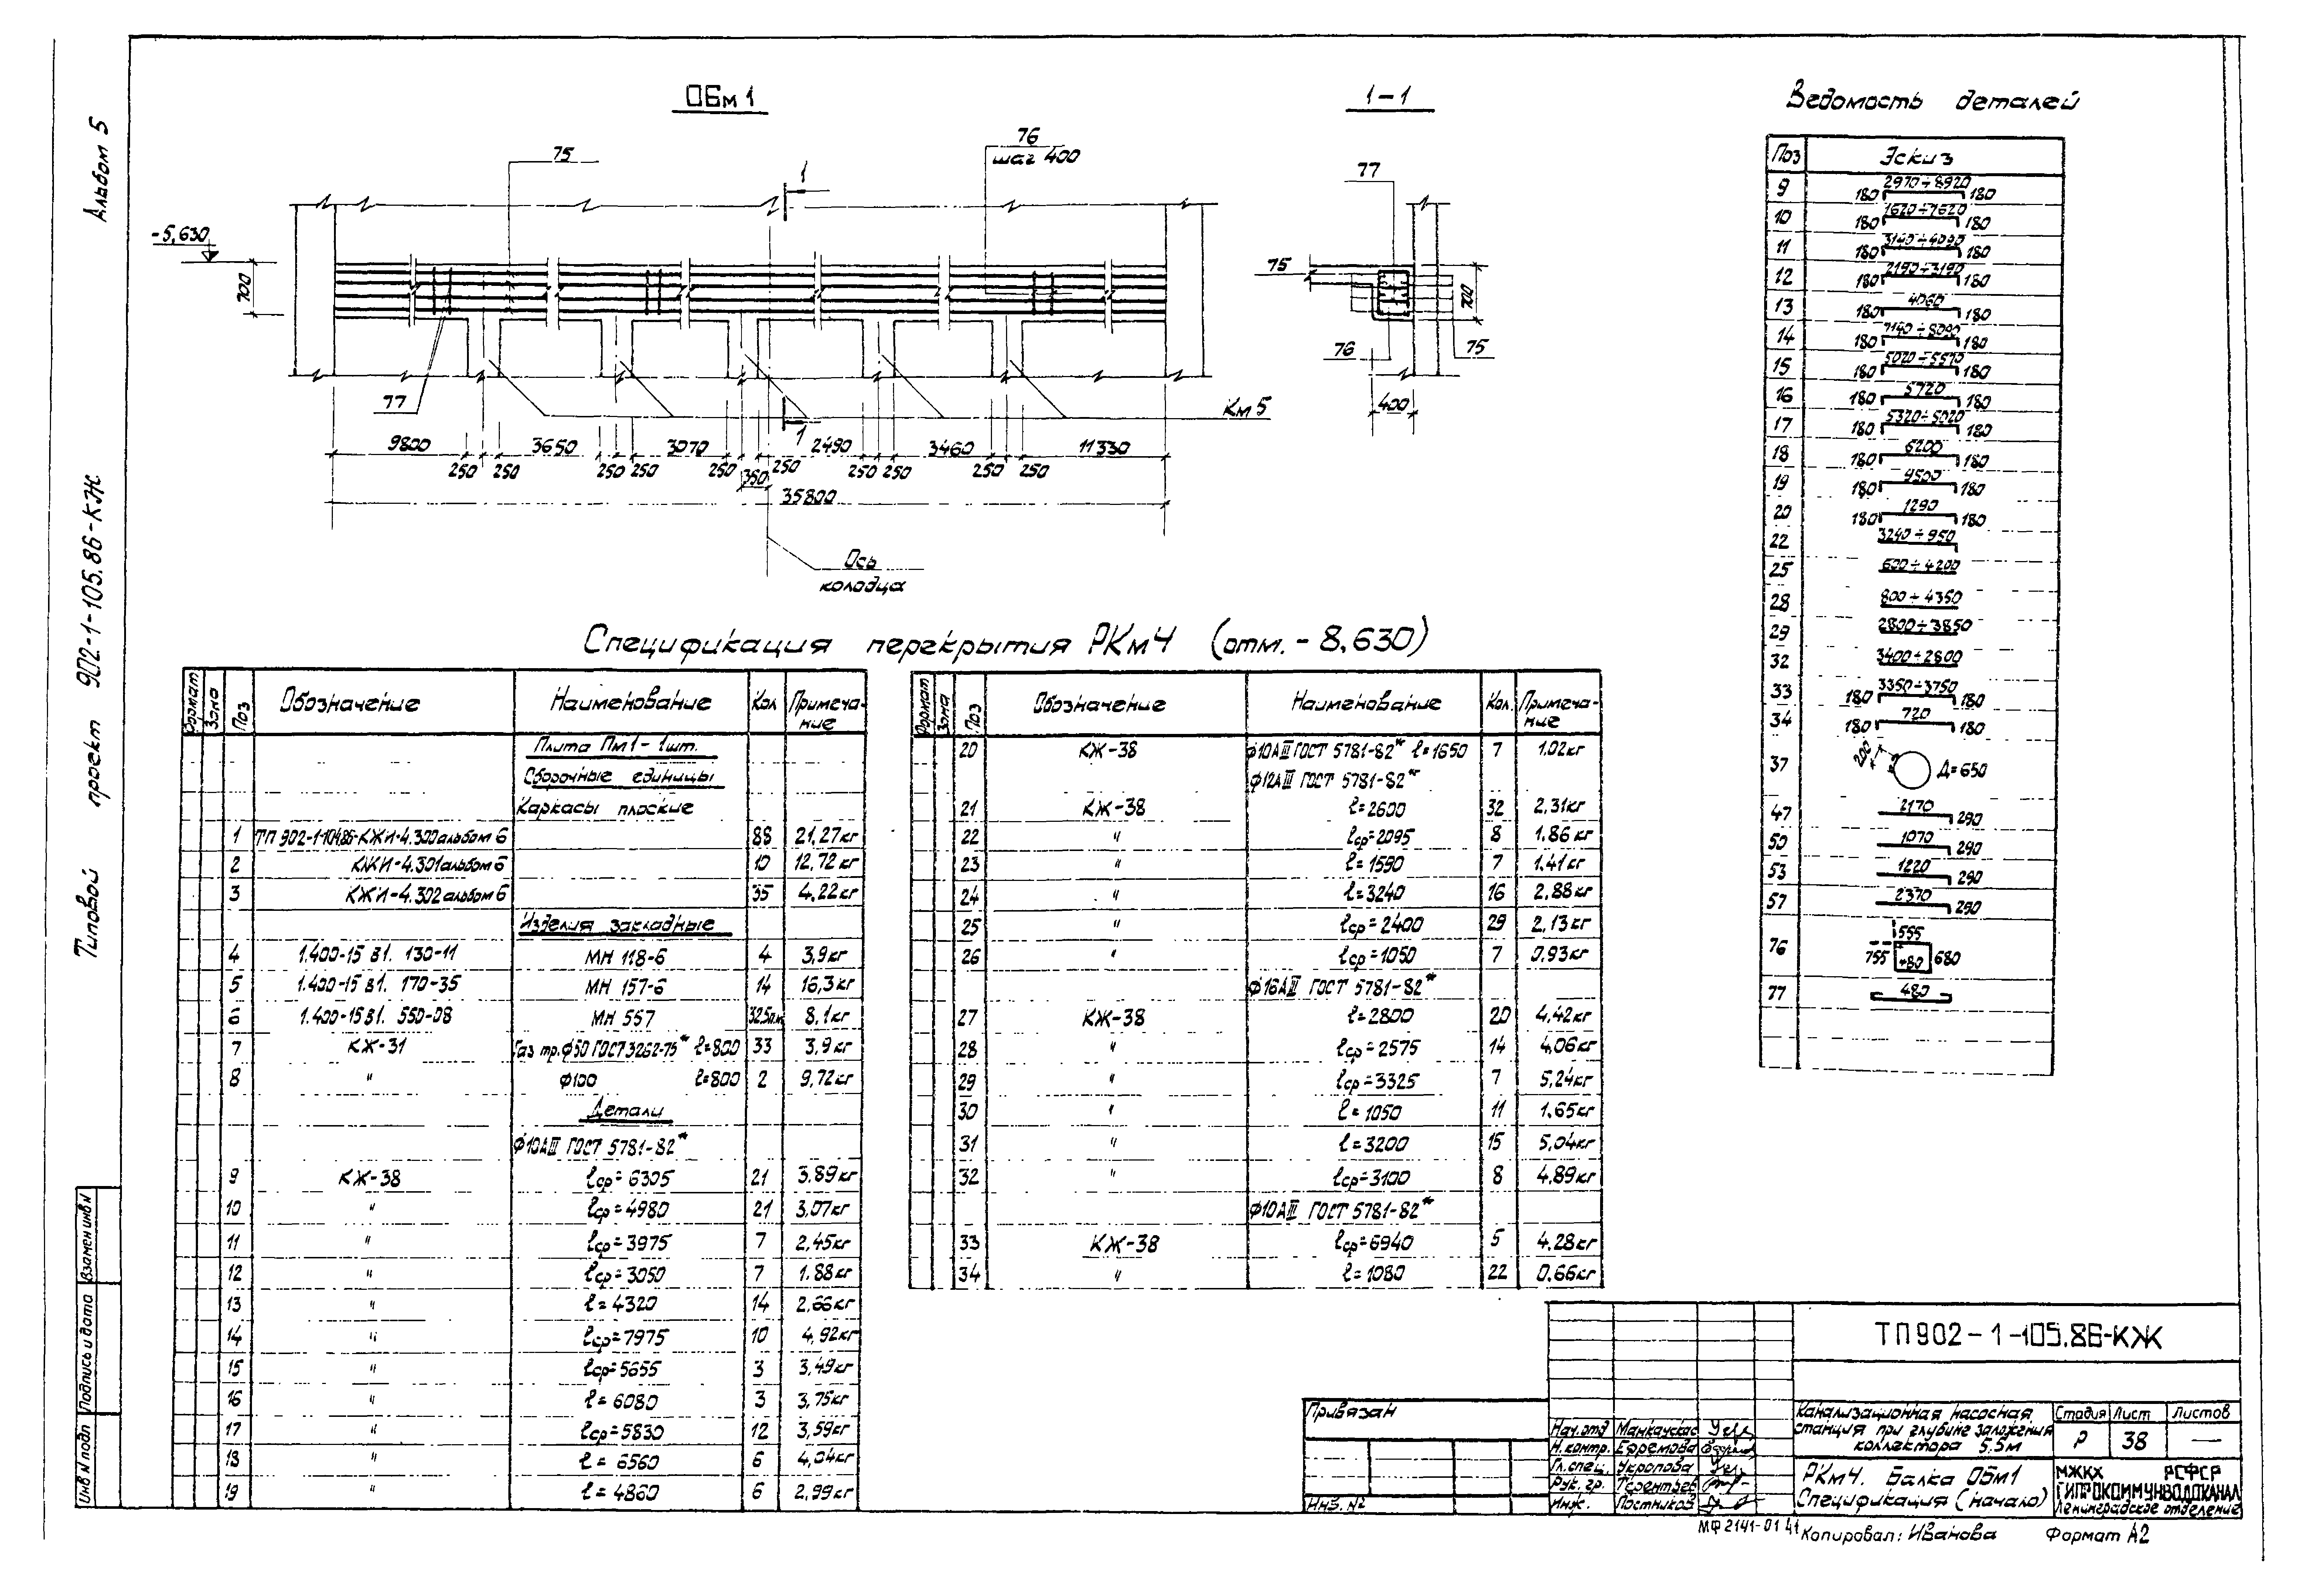 Альбом 5
Типовой проект 902-1-105.86-КЖ
Взамен инв N
Подпись и дата
Инв N подл
ОБм 1
75
76
шаг 400
1
-5,630
700
77
Км 5
1
9800
3650
3070
2490
3460
11330
250 250 250 250 250 250 250 250 250 250
350
35800
Ось
колодца
1-1
77
75
700
76
75
400
Ведомость деталей
Поз Эскиз
9 180 2970÷8920 180
10 180 1620÷7620 180
11 180 3140÷4090 180
12 180 2190÷3190 180
13 180 4060 180
14 180 7140÷8090 180
15 180 5020÷5570 180
16 180 5720 180
17 180 5320÷5020 180
18 180 6200 180
19 180 4500 180
20 180 1290 180
22 3240÷950
25 600÷4200
28 800÷4350
29 2800÷3850
32 3400÷2800
33 180 3350÷3750 180
34 180 720 180
37 200 Д=650
47 2170 290
50 1070 290
53 1220 290
57 2370 290
76 555 755 480 680
77 480
Спецификация перекрытия РКм4 (отм.-8,630)
Формат Зона Поз Обозначение Наименование Кол Примеча-
ние
Плита Пм1-1шт.
Сборочные единицы
Каркасы плоские
1 ТП 902-1-104.86-КЖИ-4.300 альбом 6 88 21,27кг
2 КЖИ-4.301 альбом 6 10 12,72 кг
3 КЖИ-4.302 альбом 6 35 4,22кг
Изделия закладные
4 1.400-15 В1. 130-11 МН 118-6 4 3,9кг
5 1.400-15 В1. 170-35 МН 157-6 14 16,3кг
6 1.400-15 В1. 550-08 МН 557 32,5п.м 8,1кг
7 КЖ-31 Газ тр. ф50 ГОСТ 3262-75* ℓ=800 33 3,9кг
8 " ф100 ℓ=800 2 9,72кг
Детали
ф10АIII ГОСТ 5781-82*
9 КЖ-38 ℓср=6305 21 3,89кг
10 " ℓср=4980 21 3,07кг
11 " ℓср=3975 7 2,45кг
12 " ℓср=3050 7 1.88кг
13 " ℓ=4320 14 2,66кг
14 " ℓср=7975 10 4,92кг
15 " ℓср=5655 3 3,49кг
16 " ℓ=6080 3 3,75кг
17 " ℓср=5830 12 3,59кг
18 " ℓ=6560 6 4,04кг
19 " ℓ=4860 6 2,99кг
Формат Зона Поз Обозначение Наименование Кол. Примеча-
ние
20 КЖ-38 ф10АIII ГОСТ 5781-82* ℓ=1650 7 1.02кг
ф12АIII ГОСТ 5781-82*
21 КЖ-38 ℓ=2600 32 2,31кг
22 " ℓср=2095 8 1.86кг
23 " ℓ=1590 7 1.41кг
24 " ℓ=3240 16 2.88кг
25 " ℓср=2400 29 2,13кг
26 " ℓср=1050 7 0,93кг
ф16АIII ГОСТ 5781-82*
27 КЖ-38 ℓ=2800 20 4,42кг
28 " ℓср=2575 14 4,06кг
29 " ℓср=3325 7 5,24кг
30 " ℓ=1050 11 1.65кг
31 " ℓ=3200 15 5,04кг
32 " ℓср=3100 8 4.89кг
ф10АIII ГОСТ 5781-82*
33 КЖ-38 ℓср=6940 5 4.28кг
34 " ℓ=1080 22 0.66кг
Привязан
Инв. N2
ТП902-1-105.86-КЖ
Нач.отд Манкаускас
Н.контр. Ефремова
Гл.спец. Укропова
Рук. гр. Терентьев
Инж. Постников
Канализационная насосная
станция при глубине заложения
коллектора 5,5м
Стадия Лист Листов
Р 38 —
РКм4. Балка ОБм1
Спецификация (начало)
МЖКХ РСФСР
ГИПРОКОММУНВОДОКАНАЛ
Ленинградское отделение
МФ 2141-01 41
Копировал: Иванова Формат А2